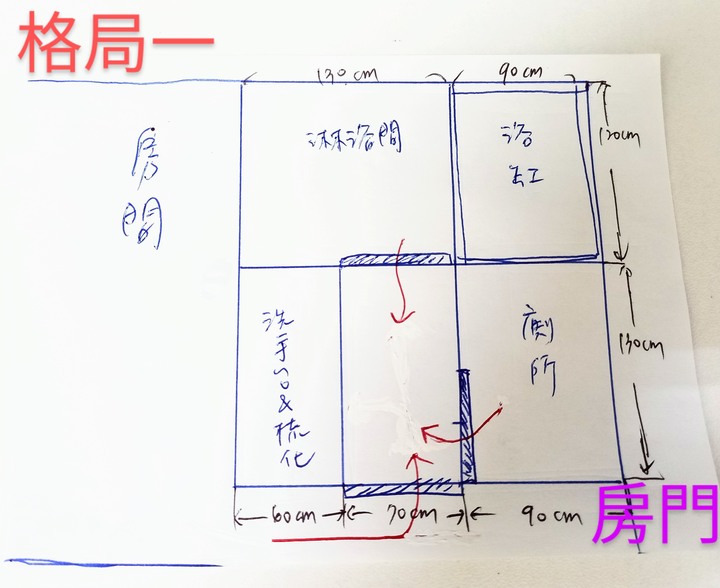 格局一
130cm
90cm
房間
淋浴間
浴缸
120cm
洗手台&梳化
廁所
130cm
60cm
70cm
90cm
房門